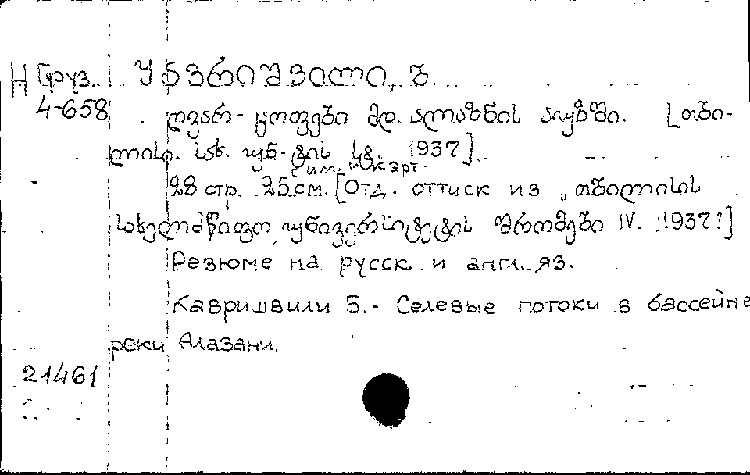 Н Груз. ყავრიშვილი, ბ.
4-658 ღვარ-ცოფები მდ. ალაზნის აუზში. [თბი-
ლისი. სახ. უნ-ტის სტ. 1937].
28 стр. с илл. и карт. 25 см. [Отд. оттиск из „თბილისის
სახელმწიფო უნივერსიტეტის შრომები IV. 1937"]
Резюме на русск. и англ. яз.
Кавришвили Б. - Селевые потоки в бассейне
реки Алазани.
21461